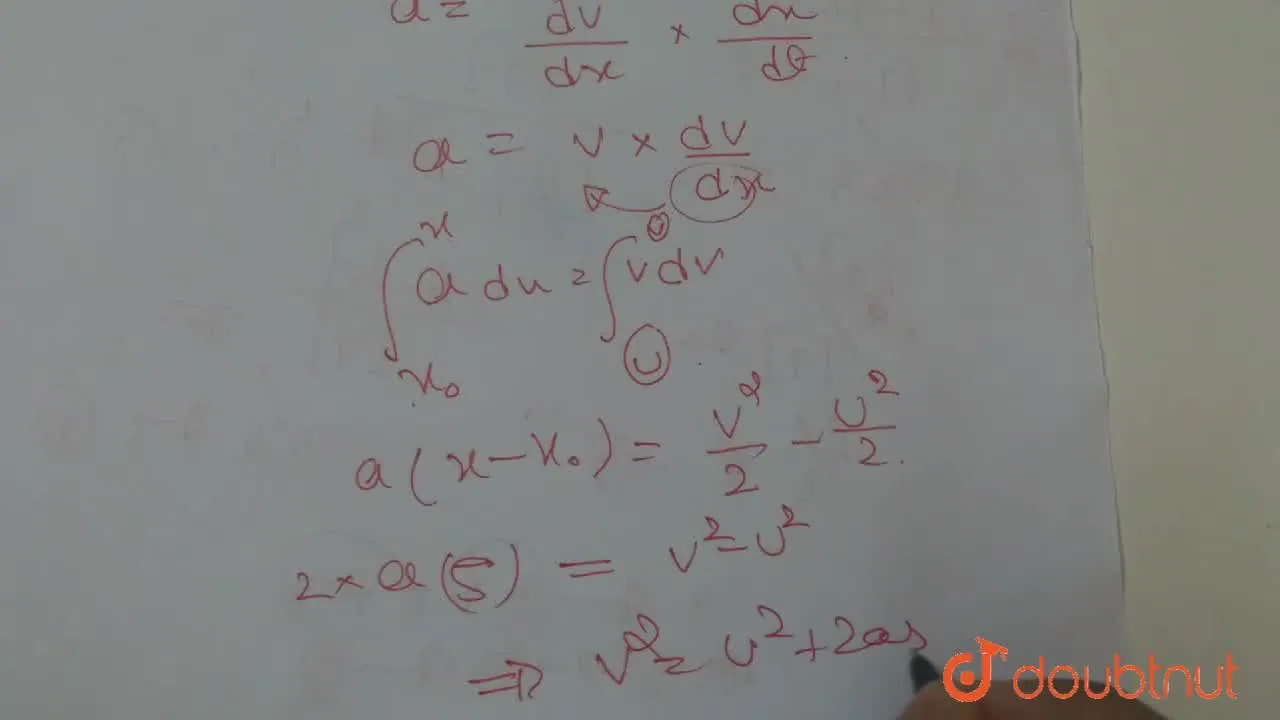 a = dv/dx × dx/dt
a = v × dv/dx
∫ₓ₀ˣ a dx = ∫ᵤᵛ v dv
a(x-x₀) = v²/2 - u²/2.
2 × a(s) = v² - u²
⇒ v² = u² + 2as
doubtnut